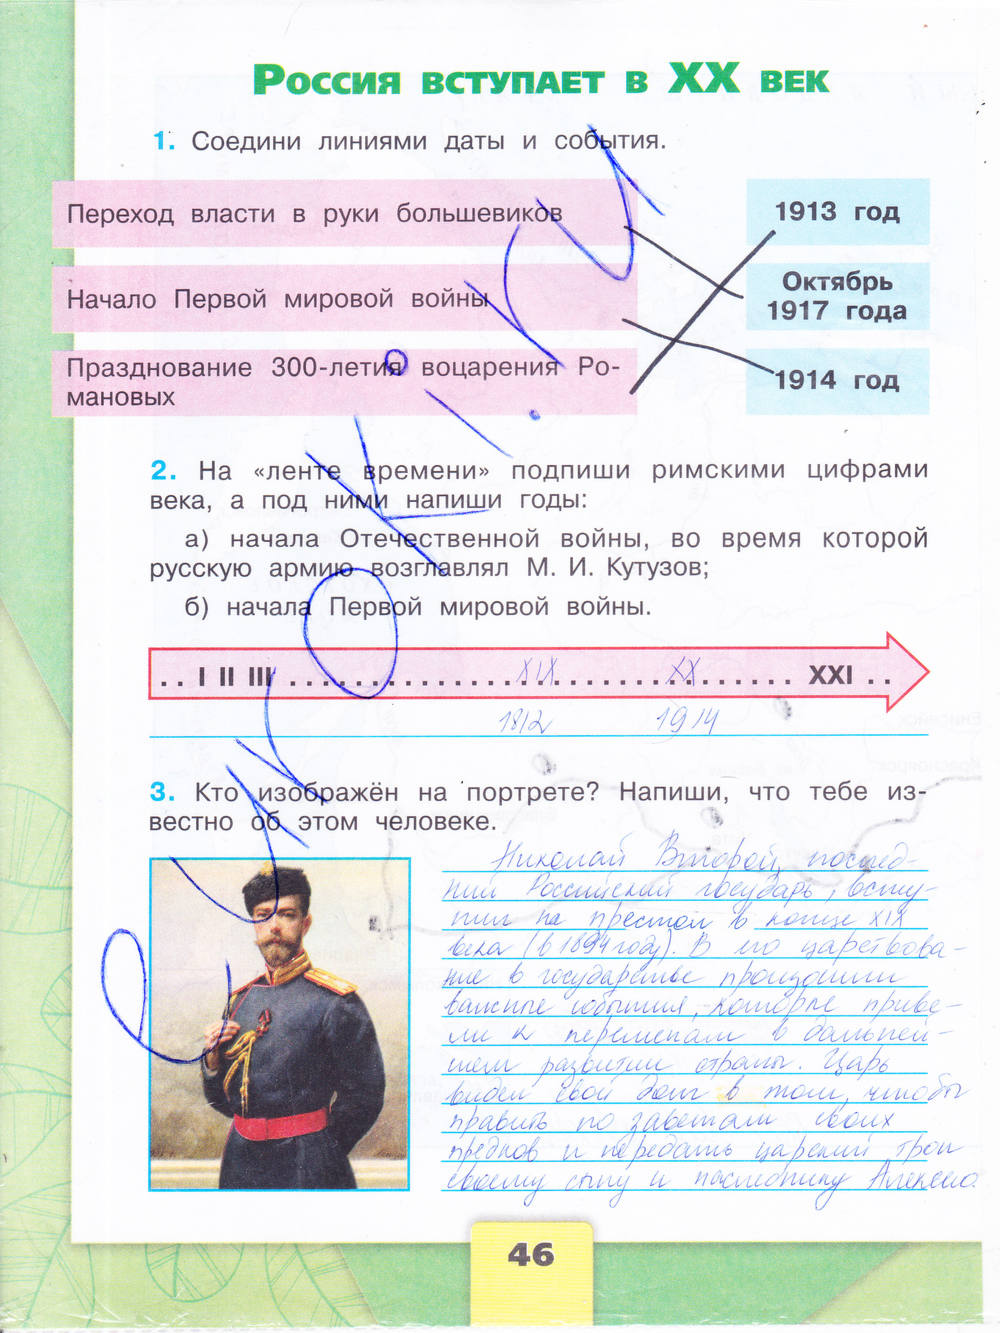 Россия вступает в XX век
1. Соедини линиями даты и события.
Переход власти в руки большевиков
1913 год
Начало Первой мировой войны
Октябрь
1917 года
Празднование 300-летия воцарения Ро-
мановых
1914 год
2. На «ленте времени» подпиши римскими цифрами
века, а под ними напиши годы:
а) начала Отечественной войны, во время которой
русскую армию возглавлял М. И. Кутузов;
б) начала Первой мировой войны.
. . I II III . . . . . . . . . . . . . . XIX . . . . . . . . . XX . . . . . . . . XXI . .
1812 1914
3. Кто изображён на портрете? Напиши, что тебе из-
вестно об этом человеке.
Николай Второй, послед-
ний Российский государь, всту-
пил на престол в конце XIX
века (в 1894 году). В его царствова-
ние в государстве произошли
важные события, которые приве-
ли к переменам в дальней-
шем развитии страны. Царь
видел свой долг в том, чтобы
править по заветам своих
предков и передать царский трон
своему сыну и наследнику Алексею.
46
e-uroki.ru